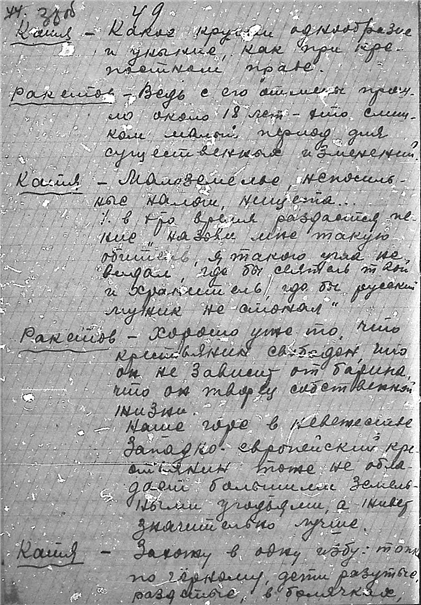 49
Катя – Какое кругом однообразие
и уныние, как при кре-
постном праве.
Ракетов – Ведь с его отмены прош-
ло около 18 лет – это слиш-
ком малый период для
существенных изменений.
Катя – Малоземелье, непосиль-
ные налоги, нищета...
в это время раздается пе-
ние „назови мне такую
обитель, я такого угла не
видал, где бы сеятель твой
и хранитель, где бы русский
мужик не стонал"
Ракетов – Хорошо уже то, что
крестьянин свободен, что
он не зависит от барина,
что он творец собственной
жизни.
Наше горе в невежестве
Западно-европейский кре-
стьянин тоже не обла-
дает большими земель-
ными угодьями, а живет
значительно лучше.
Катя – Захожу в одну избу: топка
по чёрному, дети разутые,
раздетые, в болячках,